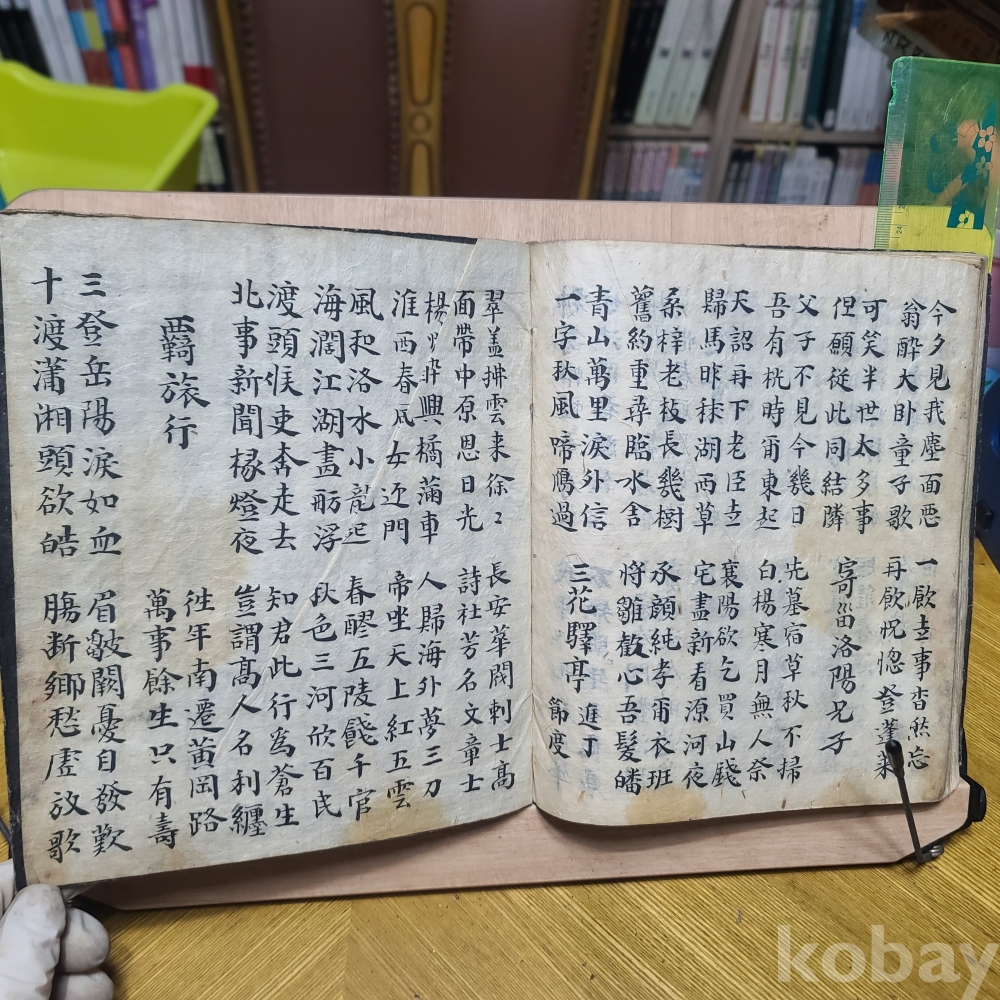 今夕見我塵面悪 一飮立事杳然忘
翁醉大卧童子歌 再飮怳惚登蓬萊
可笑半世太多事
但願從此同結隣 寄淄洛陽兄子
父子不見今幾日 先墓宿草秋不掃
吾有桄時甭東起 白楊寒月無人奈
天詔再下老臣立 襄陽欲乞買山錢
歸馬昨秣湖西草 宅盡新看源河夜
桑梓老枝長幾樹 承顔純孝甭衣班
舊約重尋臨水舍 將雛敎心吾髮皤
青山萬里淚外信
一字秋風啼鴈過 三花驛亭 進丁 節度
翠盖拂雲来徐々 長安華閥刺士高
面帶中原思日光 詩社芳名文章士
楊 興橘蒲車 人歸海外夢三刀
淮西春風女迎門 帝坐天上紅五雲
風起洛水小龍起 春醪五陵餞千官
海濶江湖畫舫浮 秋色三河欣百氏
渡頭候吏奔走去 知君此行為蒼生
北事新聞椽燈夜 豈謂髙人名利纒
覊旅行
徃年南遷黃岡路
萬事餘生只有壽
三登岳陽淚如血 眉皺闕憂自發歎
十渡瀟湘頭欲皓 膓断鄉愁虛放歌
kobay